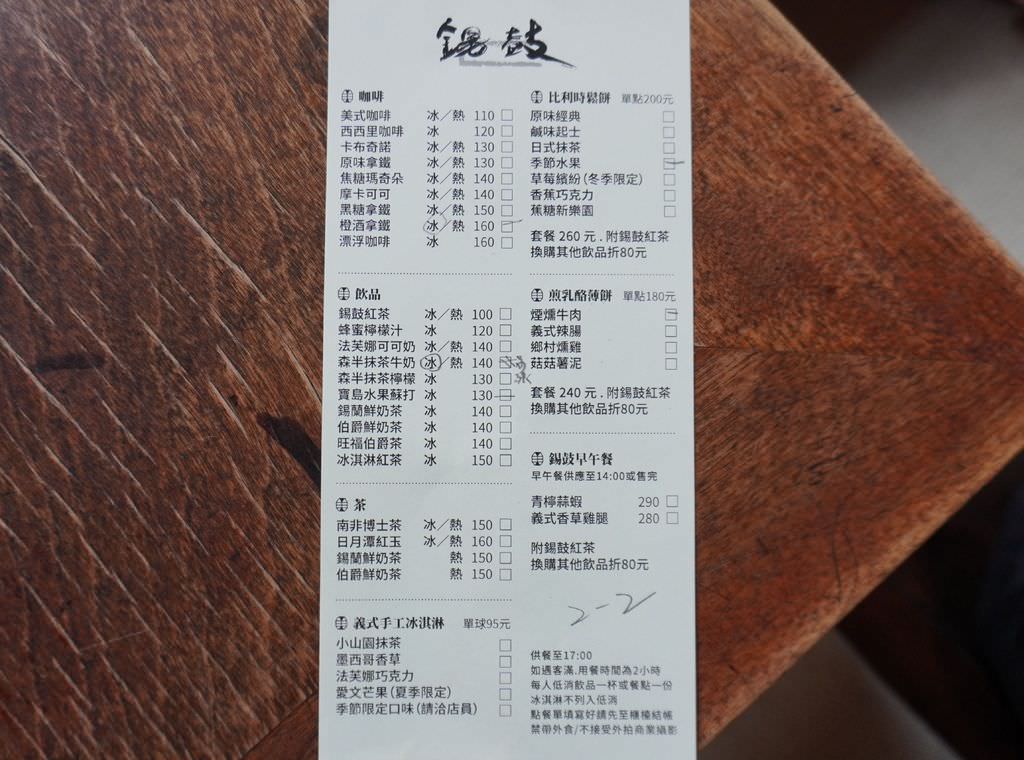 錫鼓
咖啡
美式咖啡 冰／熱 110 □
西西里咖啡 冰 120 □
卡布奇諾 冰／熱 130 □
原味拿鐵 冰／熱 130 □
焦糖瑪奇朵 冰／熱 140 □
摩卡可可 冰／熱 140 □
黑糖拿鐵 冰／熱 150 □
橙酒拿鐵 冰／熱 160 □
漂浮咖啡 冰 160 □
飲品
錫鼓紅茶 冰／熱 100 □
蜂蜜檸檬汁 冰 120 □
法芙娜可可奶 冰／熱 140 □
森半抹茶牛奶 冰／熱 140 □
森半抹茶檸檬 冰 130 □
寶島水果蘇打 冰 130 □
錫蘭鮮奶茶 冰 140 □
伯爵鮮奶茶 冰 140 □
旺福伯爵茶 冰 140 □
冰淇淋紅茶 冰 150 □
茶
南非博士茶 冰／熱 150 □
日月潭紅玉 冰／熱 160 □
錫蘭鮮奶茶 熱 150 □
伯爵鮮奶茶 熱 150 □
義式手工冰淇淋 單球95元
小山園抹茶 □
墨西哥香草 □
法芙娜巧克力 □
愛文芒果(夏季限定) □
季節限定口味(請洽店員) □
比利時鬆餅 單點200元
原味經典 □
鹹味起士 □
日式抹茶 □
季節水果 □
草莓繽紛(冬季限定) □
香蕉巧克力 □
蕉糖新樂園 □
套餐 260 元 . 附錫鼓紅茶
換購其他飲品折80元
煎乳酪薄餅 單點180元
煙燻牛肉 □
義式辣腸 □
鄉村燻雞 □
菇菇薯泥 □
套餐 240 元 . 附錫鼓紅茶
換購其他飲品折80元
錫鼓早午餐
早午餐供應至14:00或售完
青檸蒜蝦 290 □
義式香草雞腿 280 □
附錫鼓紅茶
換購其他飲品折80元
2-2
供餐至17:00
如遇客滿.用餐時間為2小時
每人低消飲品一杯或餐點一份
冰淇淋不列入低消
點餐單填寫好請先至櫃檯結帳
禁帶外食/不接受外拍商業攝影